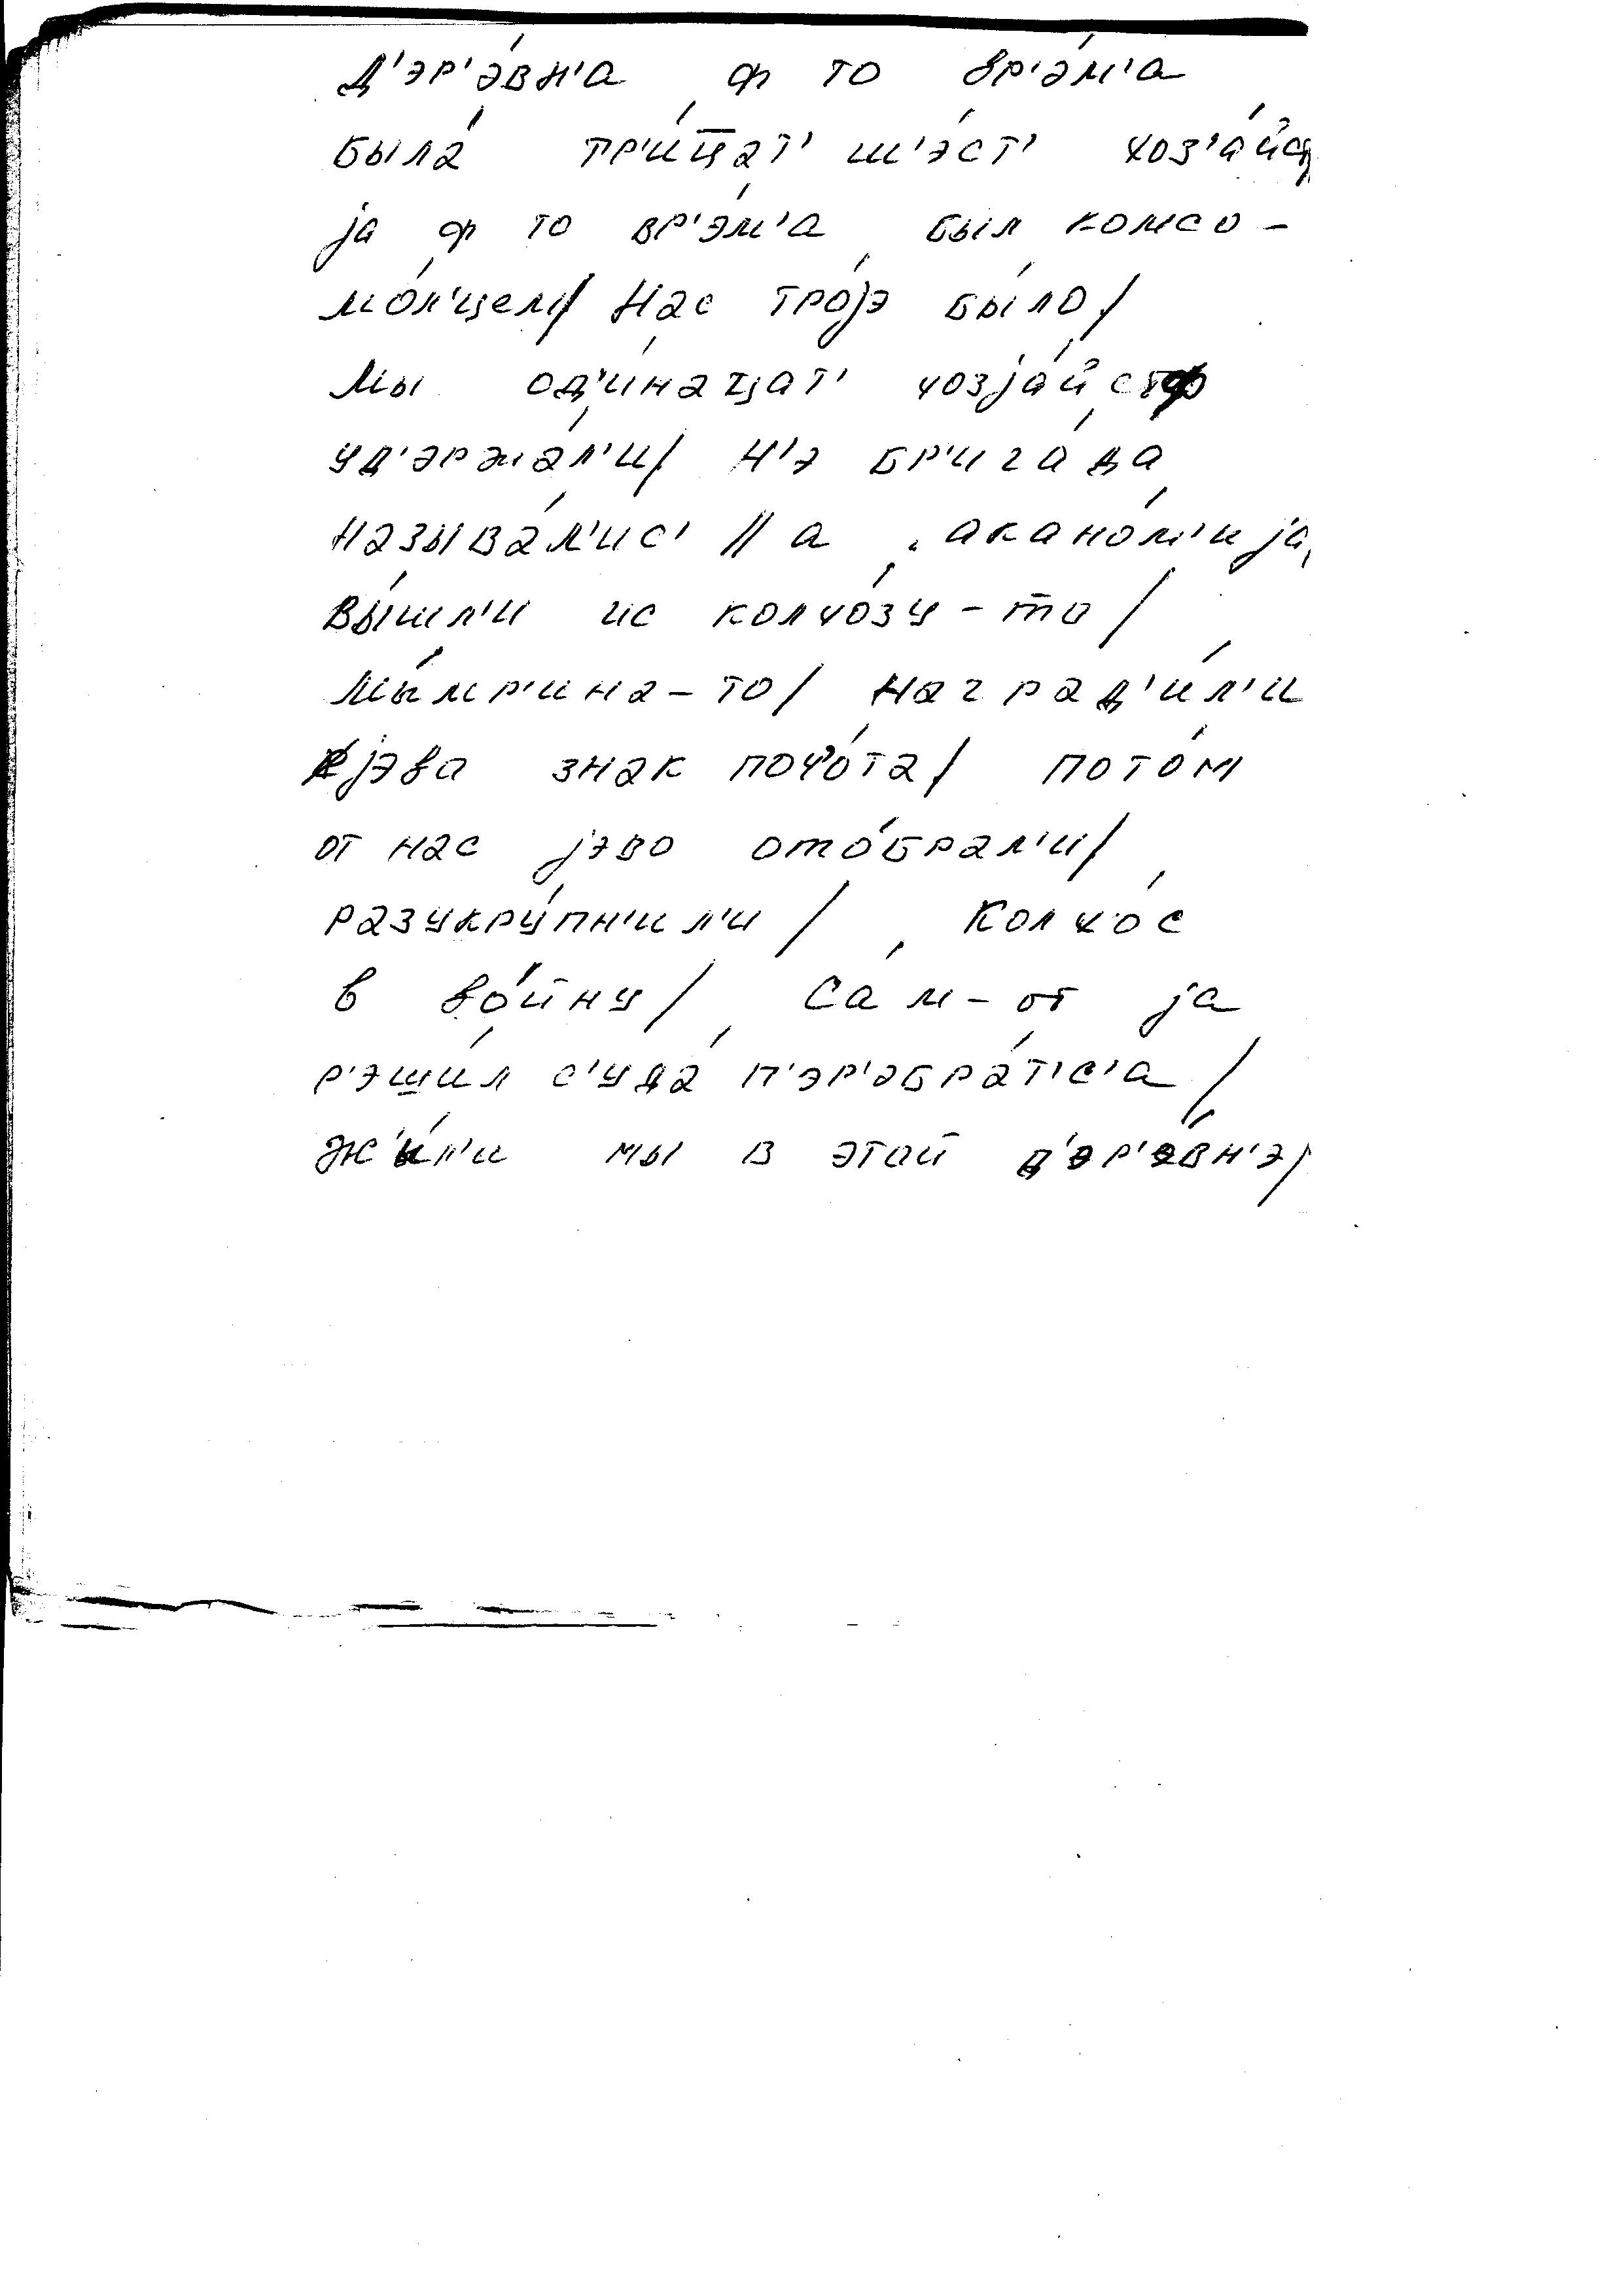 д'эр'э́вн'а ф то вр'э́м'а
была́ тр'и́ц̅ат' ш'э́ст' хоз'а́йс
ја ф то вр'э́м'а был комсо-
мо́л'цем/ Нас тро́јэ бы́ло/
мы од'и́нацат' хозја́йстф
уд'эржа́л'и/ н'э бр'ига́да
называ́л'ис' // а акано́м'ија
вы́шл'и ис колхо́зу-то/
мы́мр'ина-то/ наград'и́л'и
јэва знак почо́та/ пото́м
от нас јэво ото́брал'и/
разукру́пн'ил'и/ Колхо́с
в во́йну/ Са́м-от ја
р'эши́л с'уда́ п'эр'эбра́т'с'а/
ж'и́л'и мы в этай д'эр'э́вн'э/